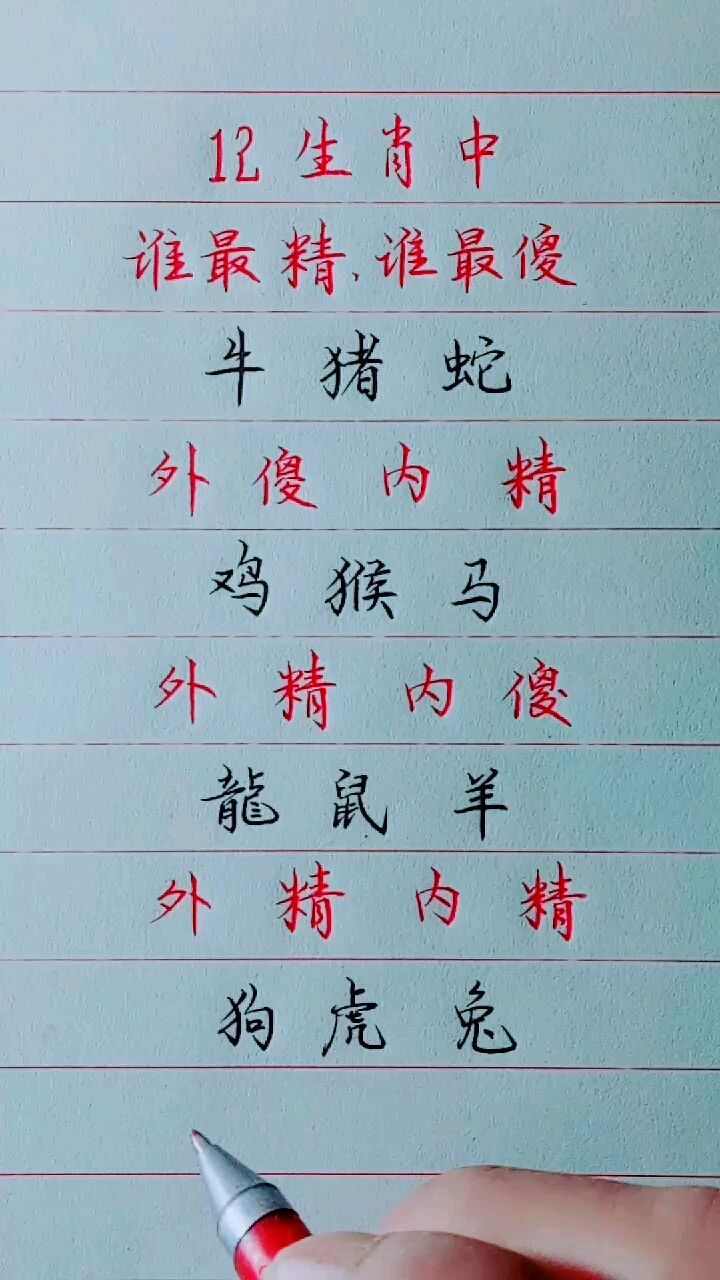 12生肖中
谁最精,谁最傻
牛 猪 蛇
外 傻 内 精
鸡 猴 马
外 精 内 傻
龍 鼠 羊
外 精 内 精
狗 虎 兔